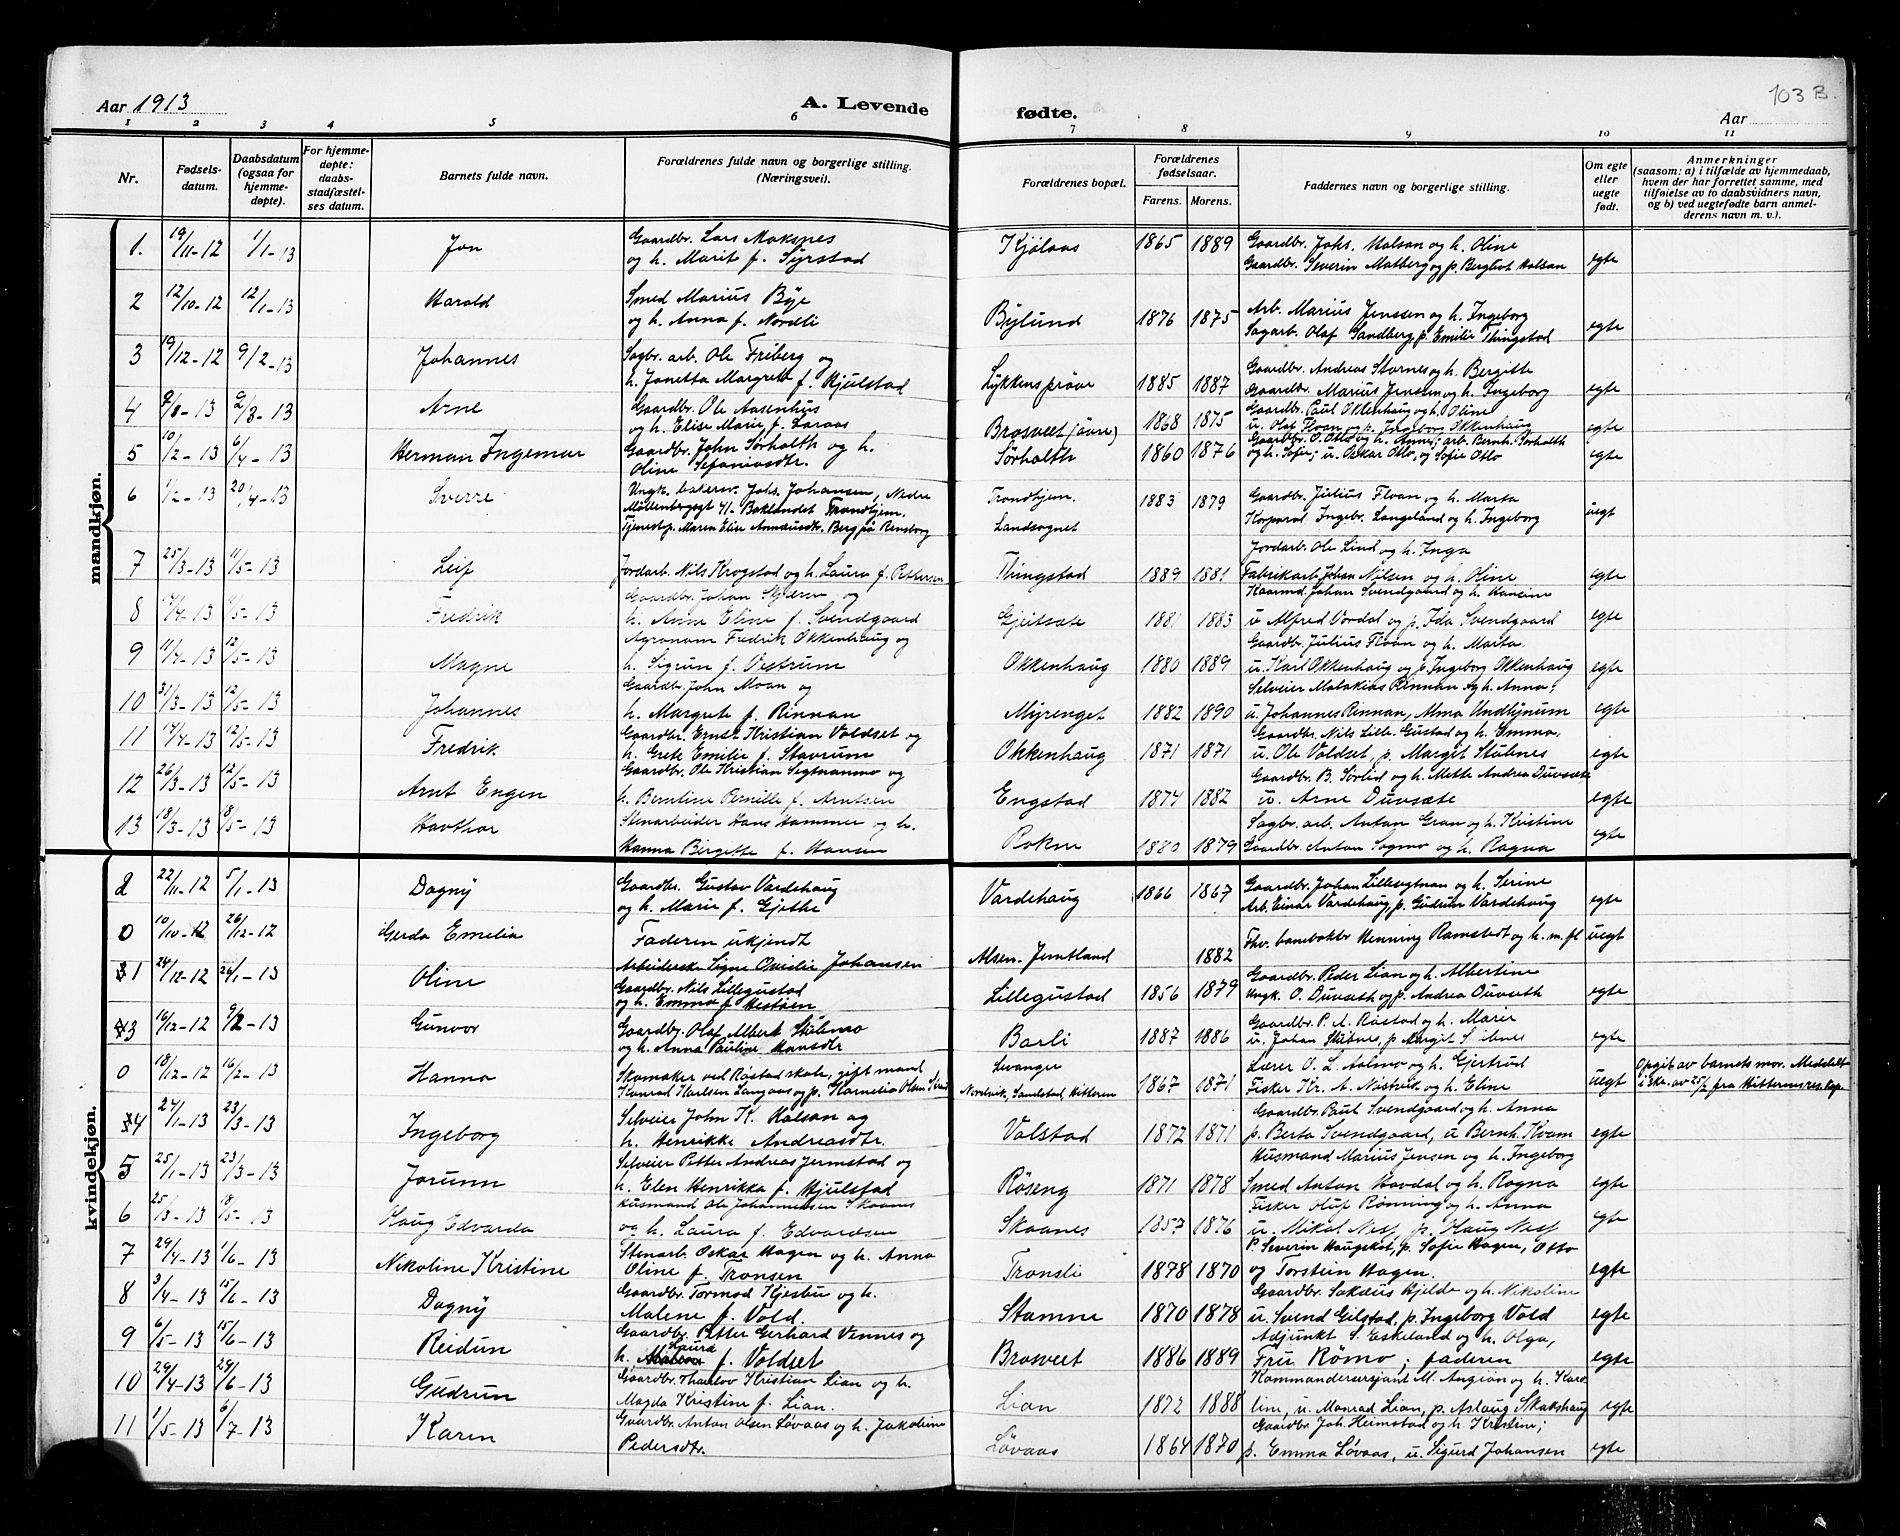 Aar 1913
A. Levende
fødte.
Aar
103 B.
1 2 3 4 5 6 7 8 9 10 11
Nr.
Fødsels-
datum.
Daabsdatum
(ogsaa for
hjemme-
døpte).
For hjemme-
døpte:
daabs-
stadfæstel-
ses datum.
Barnets fulde navn.
Forældrenes fulde navn og borgerlige stilling.
(Næringsvei).
Forældrenes bopæl.
Forældrenes
fødselsaar.
Farens. Morens.
Faddernes navn og borgerlige stilling.
Om egte
eller
uegte
født.
Anmerkninger
(saasom: a) i tilfælde av hjemmedaab,
hvem der har forrettet samme, med
tilføielse av to daabsvidners navn,
og b) ved uegtefødte barn anmel-
derens navn m. v.).
mandkjøn.
1. 19/11-12 1/1-13 Jon Gaardbr. Lars Moksnes
og h. Marit f. Syrstad
Kjølaas 1865 1889 Gaardbr. Johs. Halsan og h. Oline
Gaardbr. Severin Matberg og p. Bergliot Halsan egte
2 12/10-12 12/1-13 Harald Smed Marius Bye
og h. Anna f. Nordli
Bylund 1876 1875 Arb. Marius Jenssen og h. Ingeborg
Sagarb. Olaf Sandberg, p. Emilie Thingstad egte
3 19/12-12 9/2-13 Johannes Sagbr. arb. Ole Friberg og
h. Janetta Margrete f. Hjulstad
Lykkensprøve 1885 1887 Gaardbr. Andreas Stornes og h. Bergitte
Gaardbr. Marius Jensen og h. Ingeborg egte
4 9/8-13 9/3-13 Arne Gaardbr. Ole Aasenhus
og h. Elise Marie f. Laraas
Brosveet (øvre) 1868 1875 Gaardbr. Paul Okkenhaug og h. Oline
u. Olaf Floan og p. Ingeborg Okkenhaug egte
5 10/2-13 6/4-13 Herman Ingemar Gaardbr. John Sørholth og h.
Oline Sefaniasdtr.
Sørholth 1860 1876 Gaardbr. O. Otlo og h. Anne; arb. Bernh. Sørholth
og h. Sofie; u. Oskar Otlo, og Sofie Otlo egte
6 1/2-13 20/4-13 Sverre Ungk. bakersv. Johs. Johansen, Nedre
Møllenbergsgt 41. Baklandet Trondhjem.
Tjenestep. Maren Elise Annæusdtr. Berg på Rensborg
Trondhjem.
Landsognet
1883 1879 Gaardbr. Julius Floan og h. Marta
Korporal Ingebr. Langeland og h. Ingeborg uegt
7 25/3-13 11/5-13 Leif Jordarb. Nils Krogstad og h. Laura f. Pettersen
Thingstad 1889 1881 Jordarb. Ole Lind og h. Inga
Fabrikarb. Johan Nilsen og h. Oline egte
8 17/4-13 11/5-13 Fredrik Gaardbr. Johan og
h. Anne Eline f. Svendgaard
Gjeitsete 1881 1883 Kaarmd. Johan Svendgaard og h. Hansine
u Alfred Vordal og p. Ida Svendgaard egte
9 11/4-13 12/5-13 Magne Agronom Fredrik Okkenhaug og
h. Sigrun f. Vestrum
Okkenhaug 1880 1889 Gaardbr. Julius Floan og h. Marta.
u. Karl Okkenhaug og p. Ingeborg Okkenhaug egte
10 31/3-13 12/5-13 Johannes Gaardbr. John Moan og
h. Margrete f. Rinnan
Myrenget 1882 1890 Selveier Malakias Rinnan og h. Anna;
u. Johannes Rinnan, Alma Undlynum egte
11 17/4-13 12/5-13 Fredrik Gaardbr. Ernst Kristian Voldset og
h. Grete Emilie f. Stavrum
Okkenhaug 1871 1871 Gaardbr. Nils Lille-Gustad og h. Emma,
u. Ole Voldset, p. Margit Stubnes egte
12 26/3-13 12/5-13 Arnt Engen Gaardbr. Ole Kristian Segtnanmo og
h. Berntine Pernille f. Arntsen
Engstad 1874 1882 Gaardbr. B. Sørlid og h. Mette Andrea Duvsæte,
u. Arne Duvsæte egte
13 18/3-13 18/5-13 Havthor Stenarbeider Hans Hammer og h.
Hanna Bergette f. Hansen
Rokne 1880 1879 Sagbr. arb. Anton Gran og h. Kristine
Gaardbr. Anton Sogmo og h. Ragna egte
kvindekjøn.
2 22/11-12 5/1-13 Dagny Gaardbr. Gustav Vardehaug
og h. Marie f. Gjethe
Vardehaug 1866 1867 Gaardbr. Johan Lillesegtnan og h. Serine
Arb. Einar Vardehaug, p. Gudrun Vardehaug egte
0 10/10-12 26/12-12 Gerda Emelia Faderen ukjendt
Arbeiderske Signe Ovidie Johansen
Alsen-Jemtland 1882 Fhv. banvokter Henning Ramstedt og h. m. fl uegt
1 24/12-12 26/1-13 Oline Gaardbr. Nils Lillegustad
og h. Emma f. Hestøen
Lillegustad 1856 1879 Gaardbr. Peder Lian og h. Albertine
Ungk. O. Duvseth og p. Andrea Duvseth egte
3 16/12-12 9/2-13 Gunvor Gaardbr. Olaf Albert Stubmo
og h. Anna Pauline Hansdtr
Barli 1887 1886 Gaardbr. P. A. Røstad og h. Marie
u. Johan Stubnes, p Margit Stubnes egte
0 18/12-12 16/2-13 Hanna Skomaker ved Røstad skole, gift mand
Konrad Karlsen Langaas og p. Kornelia Olsen
Levanger
Nordvik, Sandstad, Hitteren
1867 1871 Lærer O. L. Aalmo og h. Gjertrud
Fisker Kr. A. Nesvik og h. Eline uegt Opgit av barnets mor. Meddelt
i skr. av 25/2 fra Hitterens res. kap.
4 24/1-13 23/3-13 Ingeborg Selveier John K. Halsan og
h. Henrikke Andreasdtr.
Valstad 1872 1871 Gaardbr. Paul Svendgaard og h. Anna
p. Berta Svendgaard, u Bernh. Kvam egte
5 25/1-13 23/3-13 Jorunn Selveier Petter Andreas Jermstad og
h. Elen Henrikka f. Hjulstad
Røseng 1871 1878 Husmand Marius Jensen og h. Ingeborg
Smed Anton Hovdal og h. Ragna egte
6 25/3-13 18/5-13 Olaug Edvarda Husmand Ole Johannesen Skaanes
og h. Laura f. Edvardsen
Skaanes 1857 1876 Fisker Oluf Rønning og h. Anna
u. Mikal Ness, p. Olaug Ness egte
7 29/4-13 1/6-13 Nikoline Kristine Stenarb. Oskar Hagen og h. Anna
Oline f. Tronsen
Tronsli 1878 1870 P. Severin Haugskot, p. Sofie Hagen, Otto
og Torstein Hagen. egte
8 3/4-13 15/6-13 Dagny Gaardbr. Tormod Kjesbu og h.
Malene f. Vold.
Stamne 1870 1878 Gaardbr. Sakæus Bjelde og h. Nikoline
u. Svend Gilstad, p. Ingeborg Vold egte
9 6/5-13 15/6-13 Reidun Gaardbr. Petter Gerhard Vinnes og
h. Laura f. Voldset
Brosveet 1886 1889 Adjunkt S. Eskeland og h. Olga,
Fru Rømo; faderen egte
10 29/4-13 29/6-13 Gudrun Gaardbr. Thorlov Kristian Lian og h.
Magda Kristine f. Lian.
Lian 1872 1888 Kommandersersjant M. Angion og h. Karo-
line, u. Monrad Lian, p. Aslaug Skokshaug egte
11 1/5-13 6/7-13 Karen Gaardbr. Anton Olsen Løvaas og h. Jakobine
Pedersdtr.
Løvaas 1864 1870 Gaardbr. Joh. Heimstad og h. Kristine;
p. Emma Løvaas, u. Sigurd Johansen egte